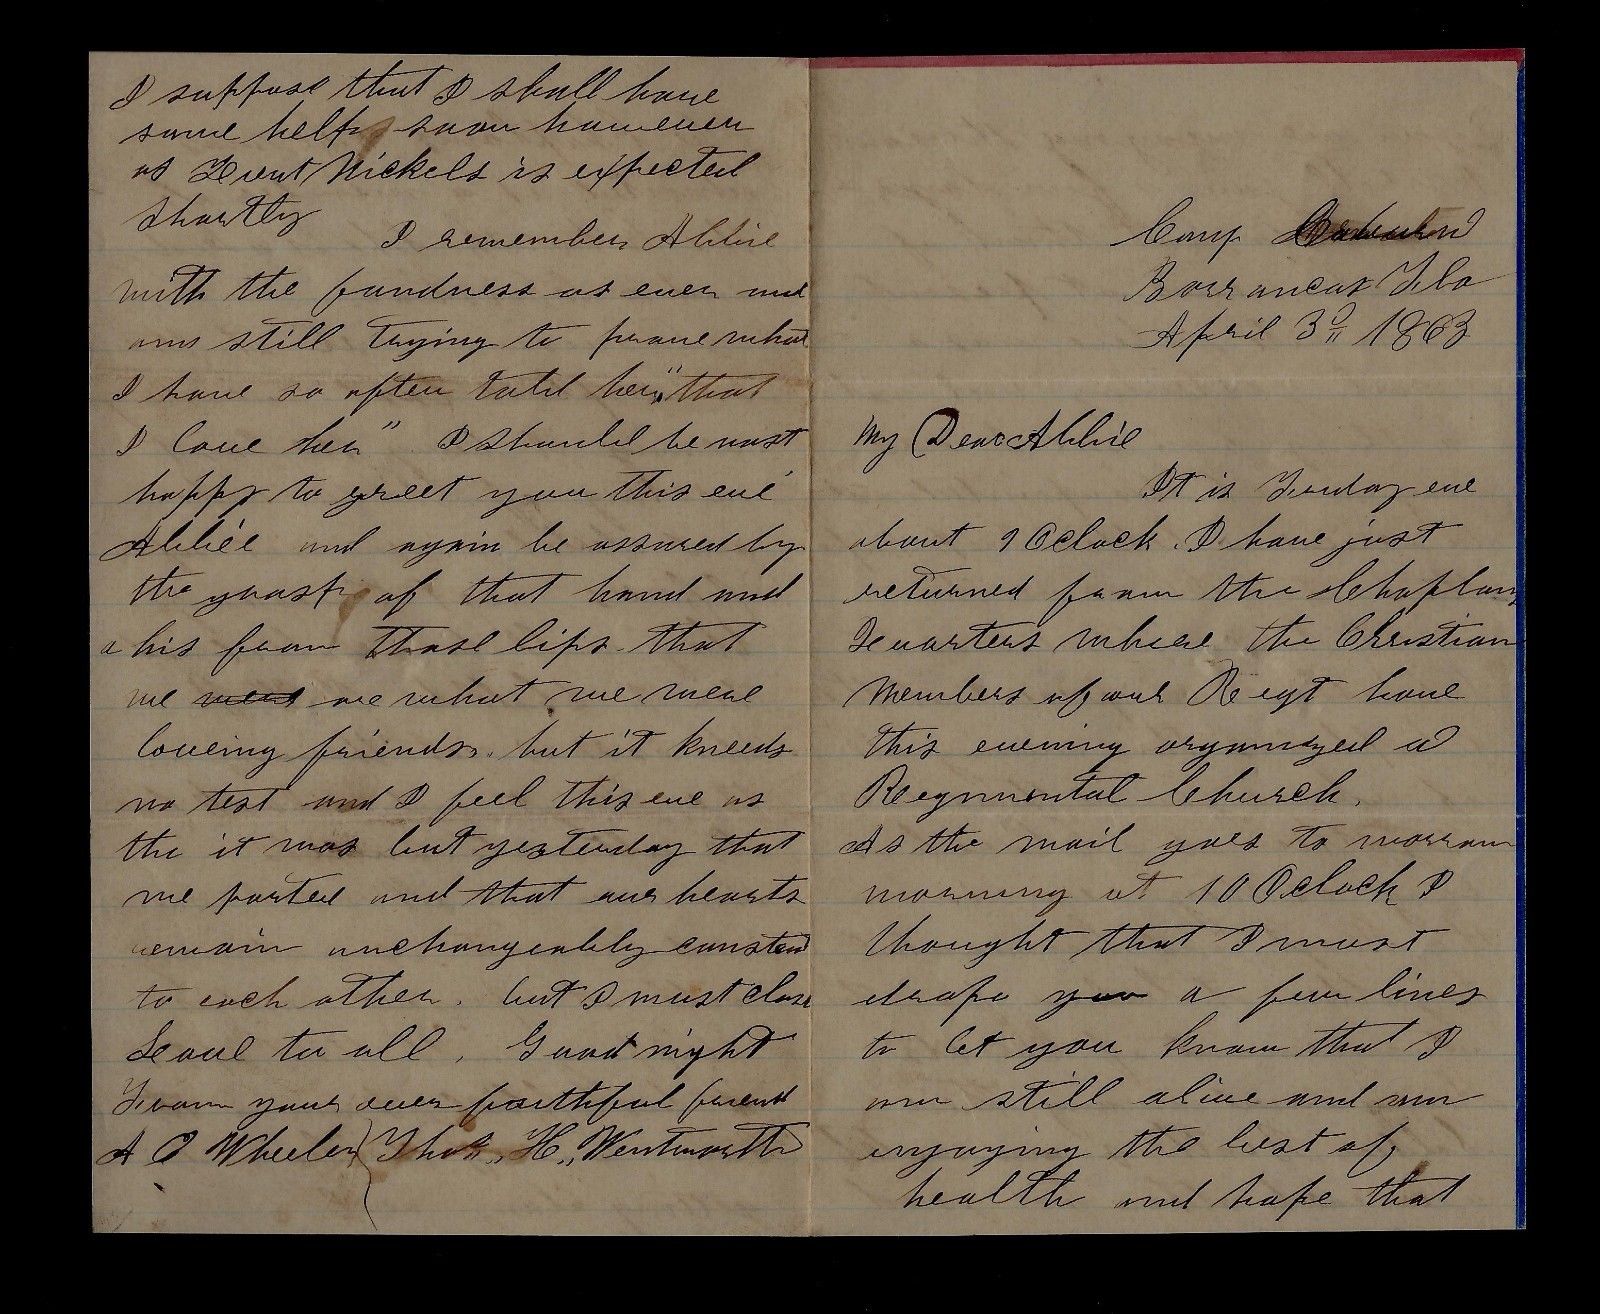 Camp
Barrancas Fla
April 3d 1863
My Dear Abbie
It is Friday eve
about 9 Oclock. I have just
returned from the Chaplans
Quarters where the Christian
members of our Regt have
this evening organized a
Regimental Church.
As the mail goes to morrow
morning at 10 Oclock I
thought that I must
drope you a few lines
to let you know that I
am still alive and am
enjoying the best of
health and hope that
I suppose that I shall have
some help soon however
as Lieut Nickels is expected
shortly
I remember Abbie
with the fondness as ever and
am still trying to prove what
I have so often told her "that
I love her" I should be most
happy to greet you this eve
Abbie and again be assured by
the grasp of that hand and
a kis from those lips that
we were are what we were
loveing friends. but it kneeds
no test and I feel this eve as
tho it was but yesterday that
we parted and that our hearts
remain unchangeably constant
to each other. but I must close
Love to all. Good night
From your ever faithful friend
A O Wheeler } Thos,, H,, Wentworth